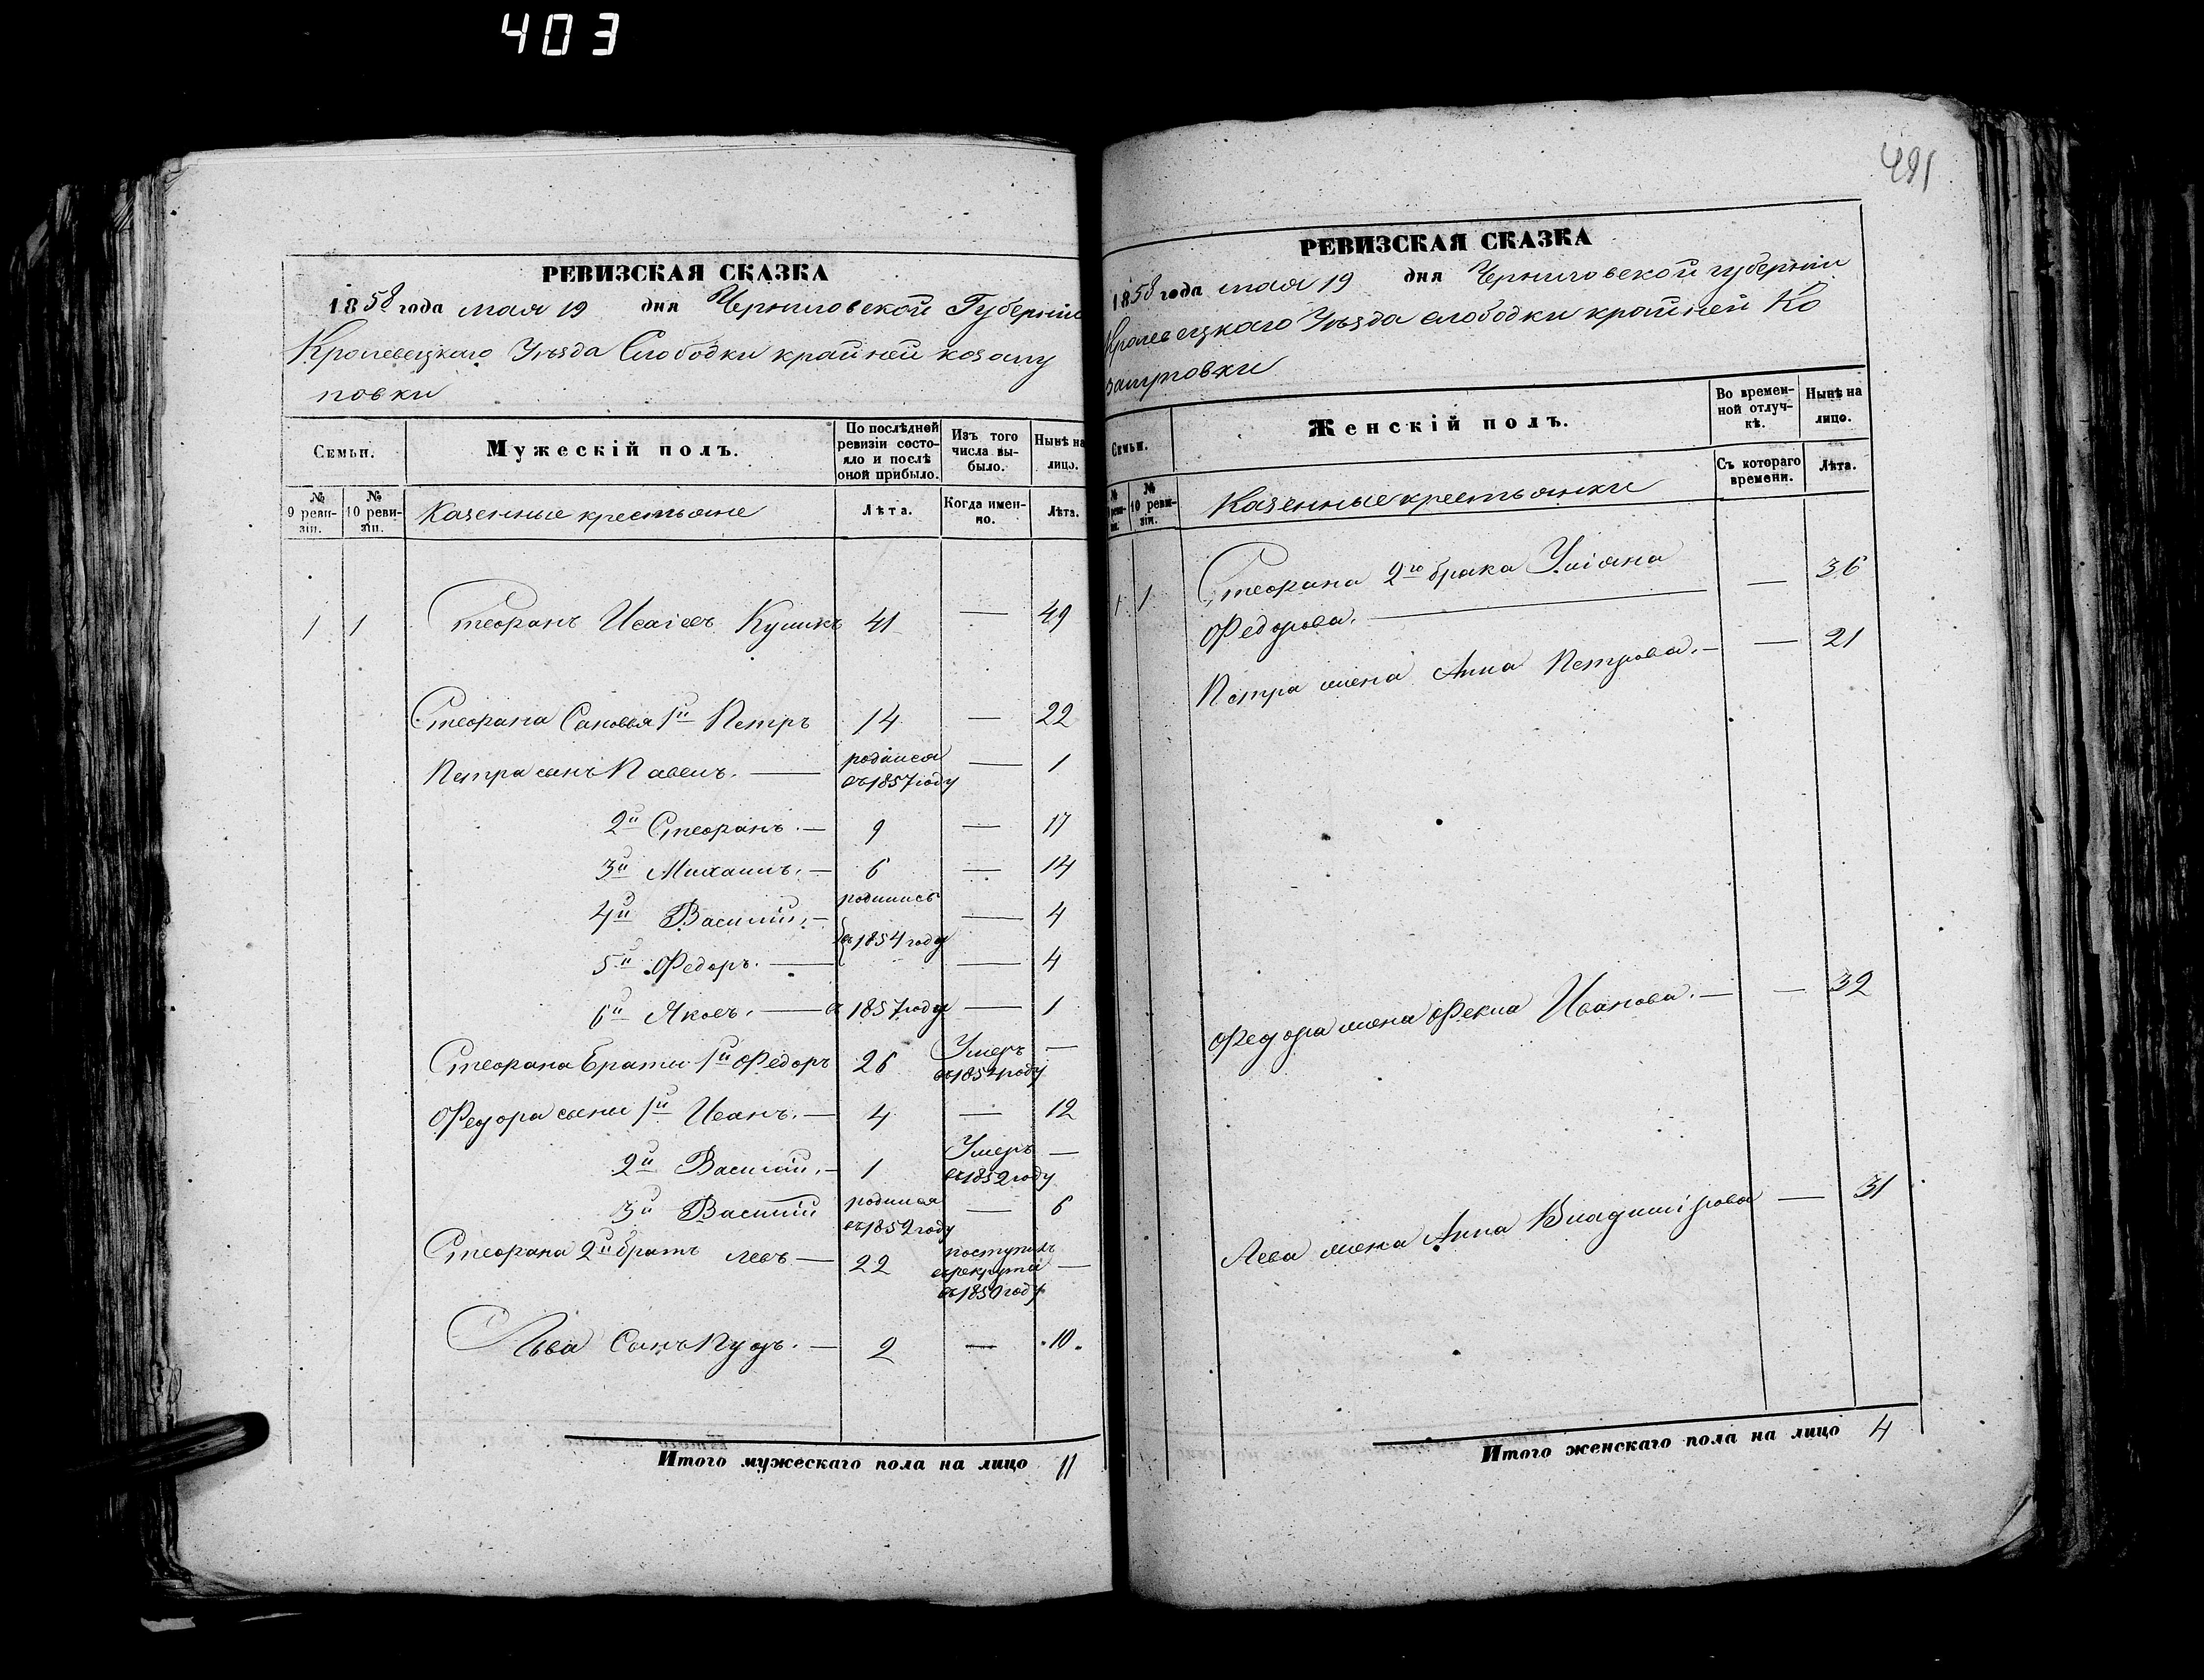 403
РЕВИЗСКАЯ СКАЗКА
1858 года мая 19 дня Черниговской Губерніи
Кролевецкаго Уѣзда Слободки крайней козацу
повки
Семьи. Мужескій полъ. По послѣдней ревизіи состояло и послѣ оной прибыло. Изъ того числа выбыло. Нынѣ на лицо.
№ 9 ревизіи. № 10 ревизіи. Казенные крестьяне Лѣта. Когда именно. Лѣта.
1 1 Стефанъ Исаіевъ Куликъ 41 — 49
Стефана Сановья 1й Петръ 14 — 22
Петра сынъ Павелъ. — родился въ 1857 году — 1
2й Стефанъ. — 9 — 17
3й Михаилъ. — 6 — 14
4й Василій. — родились — 4
въ 1854 году
5й Федоръ. — — 4
6й Яковъ. — въ 1857 году — 1
Стефана Браты 1й Федоръ 26 Умеръ въ 1852 году —
Федора сыны 1й Иванъ. — 4 — 12
2й Василій. — 1 Умеръ въ 1852 году —
3й Василій родился въ 1852 году — 6
Стефана 2й братъ Левъ — 22 поступилъ въ рекруты въ 1850 году —
Льва Сынъ Пудъ. — 2 — 10.
Итого мужескаго пола на лицо 11
491
РЕВИЗСКАЯ СКАЗКА
1858 года мая 19 дня Черниговской губерніи
Кролевецкаго Уѣзда слободки крайней Ко
зацуповки
Семьи. Женскій полъ. Во временной отлучкѣ. Нынѣ на лицо.
№ 10 ревизіи. Казенные крестьянки Съ котораго времени. Лѣта.
1 1 Стефана 2го брака Уліяна — 36
Федорова. —
Петра жена Анна Петрова. — — 21
Федора жена Фекла Иванова. — — 32
Лева жена Анна Владимірова — 31
Итого женскаго пола на лицо 4